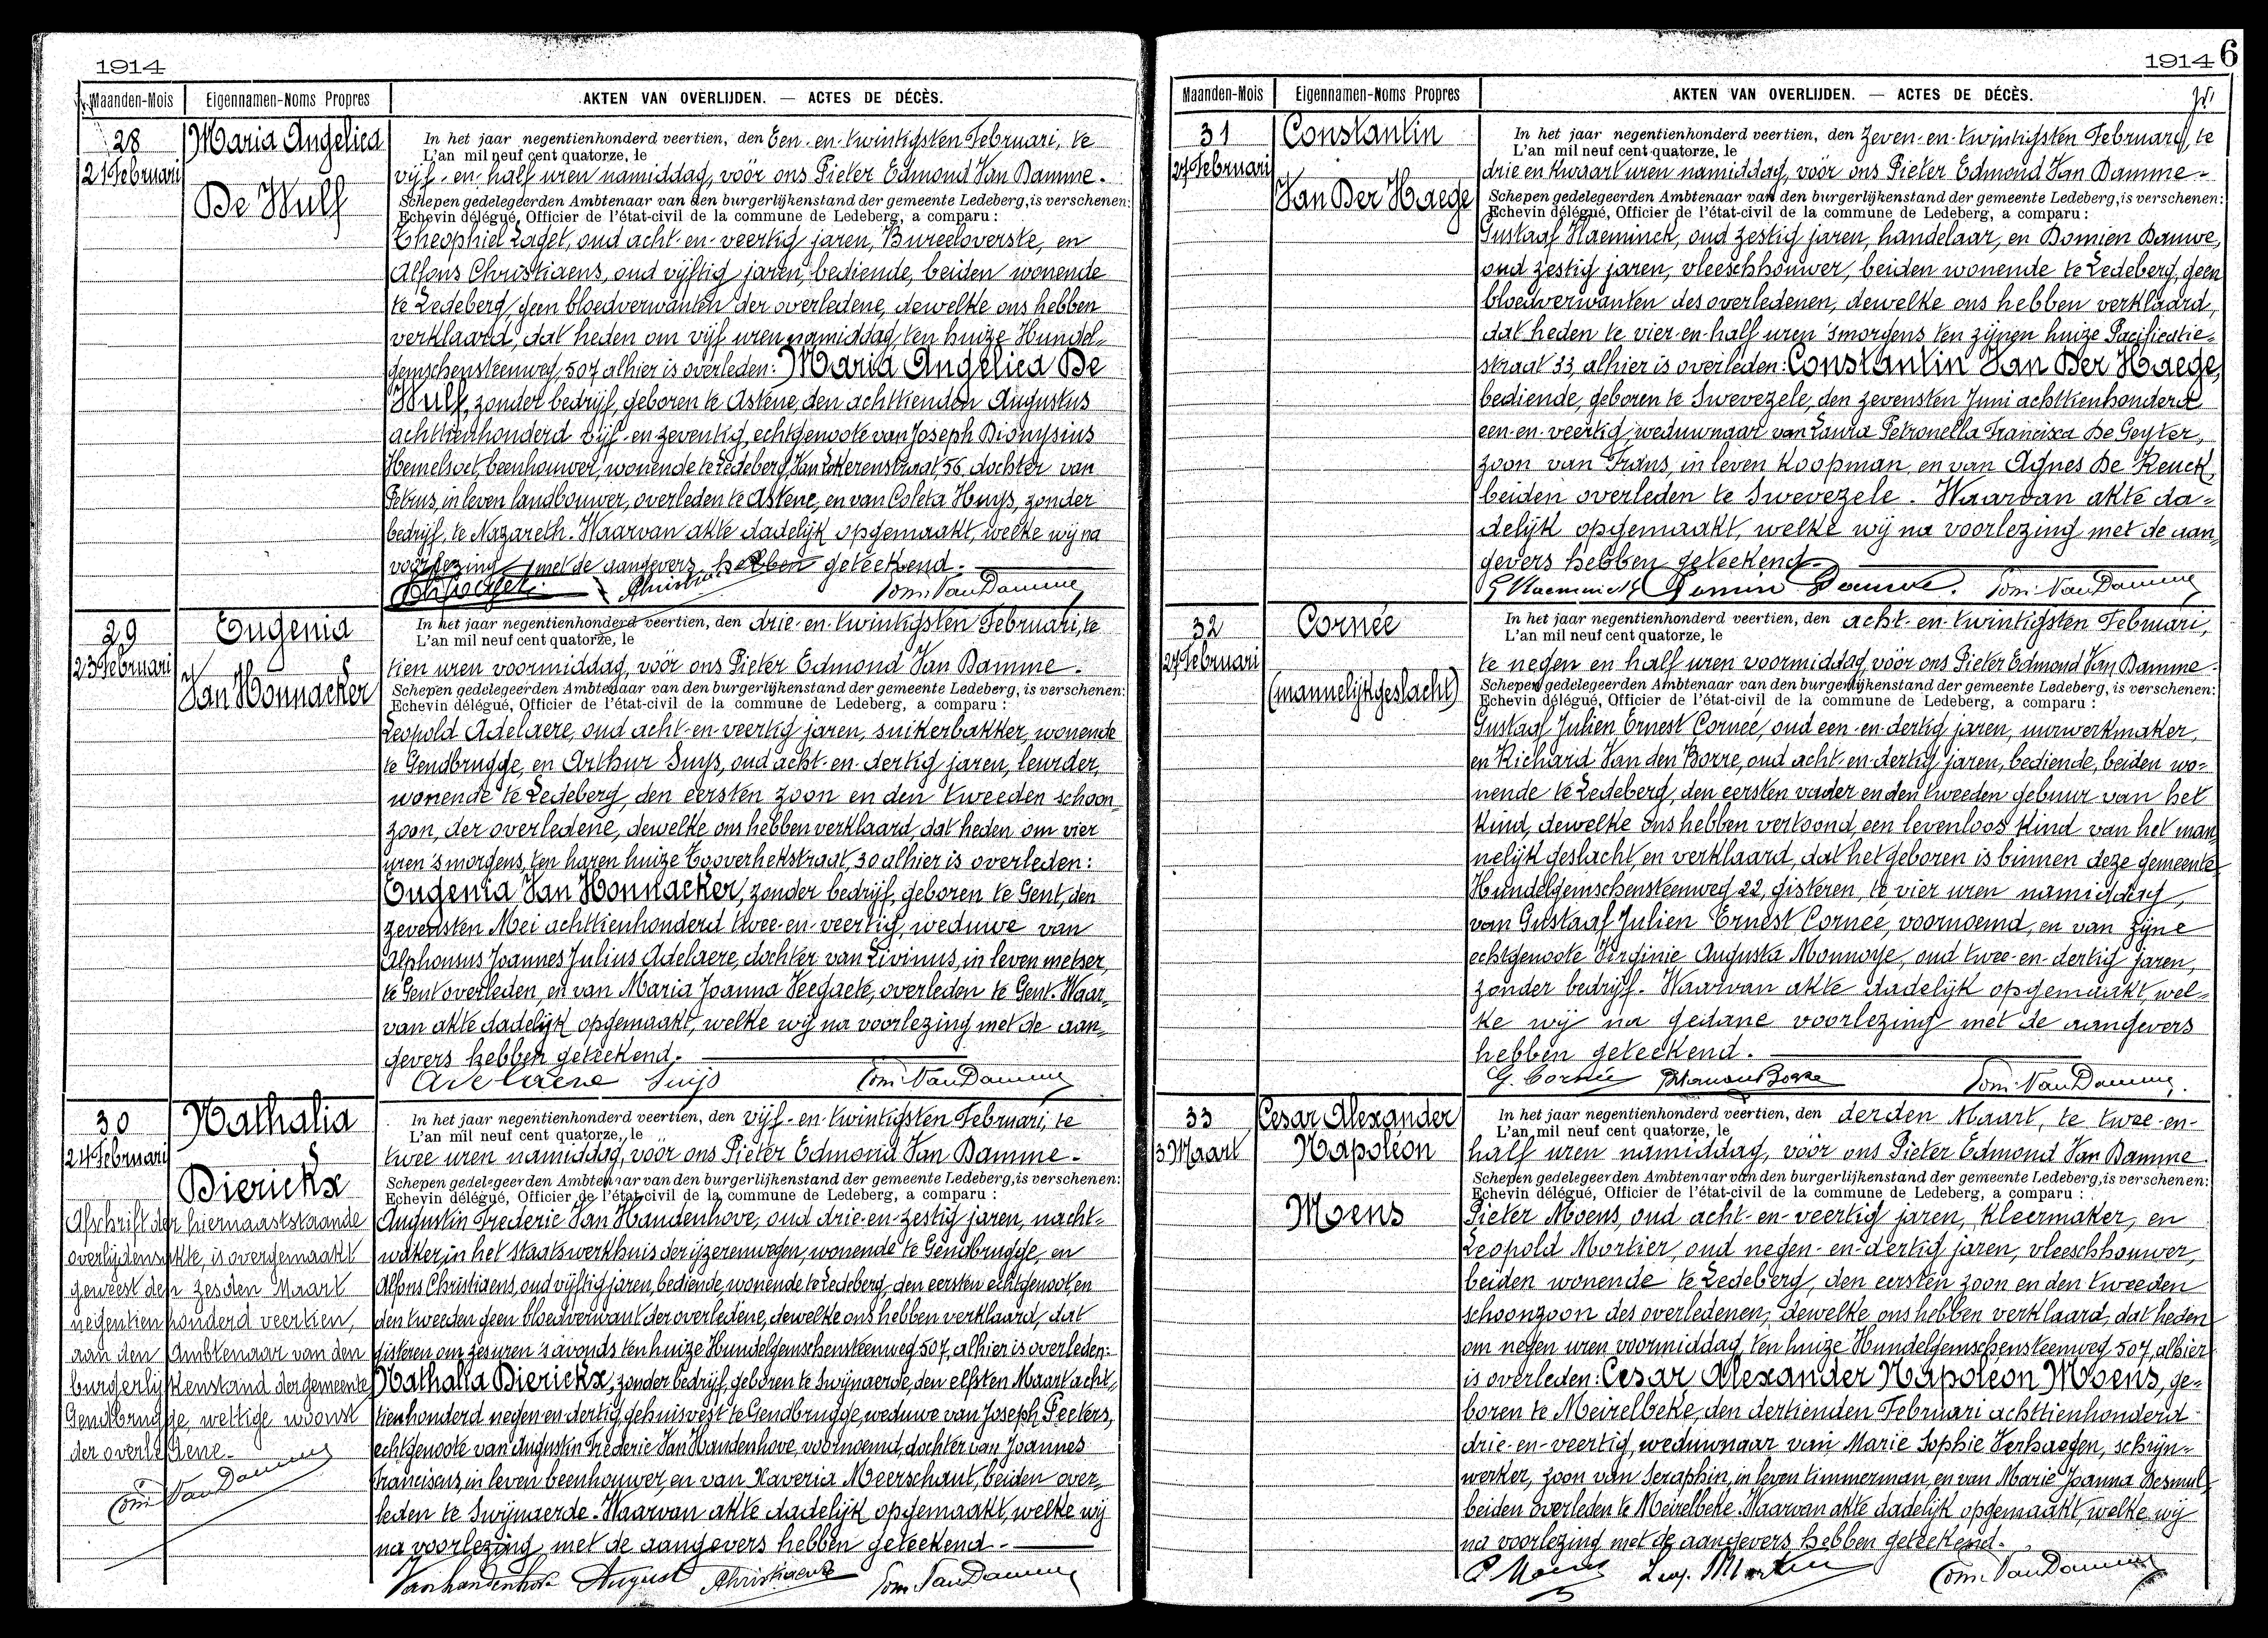 1914
Maanden-Mois Eigennamen-Noms Propres AKTEN VAN OVERLIJDEN. — ACTES DE DÉCÈS.
28
21 Februari
Maria Angelica
De Wulf
In het jaar negentienhonderd veertien, den Een-en-twintigsten Februari, te
L'an mil neuf cent quatorze, le
vijf-en-half uren namiddag, vóór ons Pieter Edmond Van Damme.
Schepen gedelegeerden Ambtenaar van den burgerlijkenstand der gemeente Ledeberg, is verschenen:
Echevin délégué, Officier de l'état-civil de la commune de Ledeberg, a comparu:
Theophiel Laget, oud acht-en-veertig jaren, Bureeloverste, en
Alfons Christiaens, oud vijftig jaren, bediende, beiden wonende
te Ledeberg, geen bloedverwanten der overledene, dewelke ons hebben
verklaard, dat heden om vijf uren namiddag, ten huize Hundel-
gemschensteenweg, 507 alhier is overleden: Maria Angelica De
Wulf, zonder bedrijf, geboren te Astene, den achttienden Augustus
achttienhonderd vijf-en-zeventig, echtgenoote van Joseph Dionysius
Hemelsoet, beenhouwer, wonende te Ledeberg, Van Lokerenstraat, 56, dochter van
Petrus, in leven landbouwer, overleden te Astene, en van Coleta Huys, zonder
bedrijf, te Nazareth. Waarvan akte dadelijk opgemaakt, welke wij na
voorlezing met de aangevers hebben geteekend.
Christiaens Edm. Van Damme
29
23 Februari
Eugenia
Van Honnacker
In het jaar negentienhonderd veertien, den drie-en-twintigsten Februari, te
L'an mil neuf cent quatorze, le
tien uren voormiddag, vóór ons Pieter Edmond Van Damme.
Schepen gedelegeerden Ambtenaar van den burgerlijkenstand der gemeente Ledeberg, is verschenen:
Echevin délégué, Officier de l'état-civil de la commune de Ledeberg, a comparu:
Leopold Adelaere, oud acht-en-veertig jaren, suikerbakker, wonende
te Gendbrugge, en Arthur Suys, oud acht-en-dertig jaren, leurder,
wonende te Ledeberg, den eersten zoon en den tweeden schoon-
zoon, der overledene, dewelke ons hebben verklaard, dat heden om vier
uren 's morgens, ten haren huize Eggverhekstraat, 30 alhier is overleden:
Eugenia Van Honnacker, zonder bedrijf, geboren te Gent, den
zevensten Mei achttienhonderd twee-en-veertig, weduwe van
Alphonsus Joannes Julius Adelaere, dochter van Livinus, in leven metser,
te Gent overleden, en van Maria Joanna Veegaete, overleden te Gent. Waar-
van akte dadelijk opgemaakt, welke wij na voorlezing met de aan-
gevers hebben geteekend.
Adelaere Suijs Edm. Van Damme
30
24 Februari
Nathalia
Dierickx
Afschrift der hiernaaststaande
overlijdensakte, is overgemaakt
geweest den zesden Maart
negentienhonderd veertien,
aan den Ambtenaar van den
burgerlijkenstand der gemeente
Gendbrugge, wettige woonst
der overledene.
Edm. Van Damme
In het jaar negentienhonderd veertien, den vijf-en-twintigsten Februari, te
L'an mil neuf cent quatorze, le
twee uren namiddag, vóór ons Pieter Edmond Van Damme.
Schepen gedelegeerden Ambtenaar van den burgerlijkenstand der gemeente Ledeberg, is verschenen:
Echevin délégué, Officier de l'état-civil de la commune de Ledeberg, a comparu:
Augustin Frederic Van Handenhove, oud drie-en-zestig jaren, nacht-
waker in het staatswerkhuis der ijzerenwegen, wonende te Gendbrugge, en
Alfons Christiaens, oud vijftig jaren, bediende, wonende te Ledeberg, den eersten echtgenoot, en
den tweeden geen bloedverwant der overledene, dewelke ons hebben verklaard, dat
gisteren om zes uren 's avonds ten huize Hundelgemschensteenweg 507, alhier is overleden:
Nathalia Dierickx, zonder bedrijf, geboren te Swijnaerde, den elfsten Maart acht-
tienhonderd negen en dertig, gehuisvest te Gendbrugge, weduwe van Joseph Peeters,
echtgenoote van Augustin Frederic Van Handenhove, voornoemd, dochter van Joannes
Franciscus, in leven beenhouwer, en van Xaveria Meerschaut, beiden over-
leden te Swijnaerde. Waarvan akte dadelijk opgemaakt, welke wij
na voorlezing met de aangevers hebben geteekend.
Vanhandenhove August Christiaens Edm. Van Damme
1914 6
Maanden-Mois Eigennamen-Noms Propres AKTEN VAN OVERLIJDEN. — ACTES DE DÉCÈS.
31
27 Februari
Constantin
Van Der Haege
In het jaar negentienhonderd veertien, den zeven-en-twintigsten Februari, te
L'an mil neuf cent quatorze, le
drie en kwaart uren namiddag, vóór ons Pieter Edmond Van Damme.
Schepen gedelegeerden Ambtenaar van den burgerlijkenstand der gemeente Ledeberg, is verschenen:
Echevin délégué, Officier de l'état-civil de la commune de Ledeberg, a comparu:
Gustaaf Haeminck, oud zestig jaren, handelaar, en Domien Dauwe,
oud zestig jaren, vleeschhouwer, beiden wonende te Ledeberg, geen
bloedverwanten des overledenen, dewelke ons hebben verklaard,
dat heden te vier-en-half uren 's morgens ten zijnen huize Pacificatie-
straat 33, alhier is overleden: Constantin Van Der Haege,
bediende, geboren te Swevezele, den zevensten Juni achttienhonderd
een-en-veertig, weduwnaar van Laura Petronella Francisca De Geyter,
zoon van Frans, in leven koopman, en van Agnes De Keuck,
beiden overleden te Swevezele. Waarvan akte da-
delijk opgemaakt, welke wij na voorlezing met de aan-
gevers hebben geteekend.
G Haeminck Domien Dauwe. Edm. Van Damme
32
27 Februari
Cornée
(mannelijk geslacht)
In het jaar negentienhonderd veertien, den acht-en-twintigsten Februari,
L'an mil neuf cent quatorze, le
te negen en half uren voormiddag, vóór ons Pieter Edmond Van Damme.
Schepen gedelegeerden Ambtenaar van den burgerlijkenstand der gemeente Ledeberg, is verschenen:
Echevin délégué, Officier de l'état-civil de la commune de Ledeberg, a comparu:
Gustaaf Julien Ernest Cornée, oud een-en-dertig jaren, uurwerkmaker,
en Richard Van den Borre, oud acht-en-dertig jaren, bediende, beiden wo-
nende te Ledeberg, den eersten vader en den tweeden gebuur van het
kind, dewelke ons hebben vertoond, een levenloos kind van het man-
nelijk geslacht, en verklaard, dat het geboren is binnen deze gemeente
Hundelgemschensteenweg 22, gisteren, te vier uren namiddag,
van Gustaaf Julien Ernest Cornée, voornoemd, en van zijne
echtgenoote Virginie Augusta Monnoye, oud twee-en-dertig jaren,
zonder bedrijf. Waarvan akte dadelijk opgemaakt, wel-
ke wij na gedane voorlezing met de aangevers
hebben geteekend.
G. Cornée Edm. Van Damme.
33
3 Maart
Cesar Alexander
Napoléon
Moens
In het jaar negentienhonderd veertien, den derden Maart, te twee-en-
L'an mil neuf cent quatorze, le
half uren namiddag, vóór ons Pieter Edmond Van Damme.
Schepen gedelegeerden Ambtenaar van den burgerlijkenstand der gemeente Ledeberg, is verschenen:
Echevin délégué, Officier de l'état-civil de la commune de Ledeberg, a comparu:
Pieter Moens, oud acht-en-veertig jaren, kleermaker, en
Leopold Mortier, oud negen-en-dertig jaren, vleeschhouwer,
beiden wonende te Ledeberg, den eersten zoon en den tweeden
schoonzoon des overledenen, dewelke ons hebben verklaard, dat heden
om negen uren voormiddag, ten huize Hundelgemschensteenweg 507, alhier
is overleden: Cesar Alexander Napoléon Moens, ge-
boren te Meirelbeke, den dertienden Februari achttienhonderd
drie-en-veertig, weduwnaar van Marie Sophie Verhaegen, schrijn-
werker, zoon van Seraphin, in leven timmerman, en van Marie Joanna Desmul,
beiden overleden te Meirelbeke. Waarvan akte dadelijk opgemaakt, welke wij
na voorlezing met de aangevers hebben geteekend.
P. Moens Leop. Mortier Edm. Van Damme